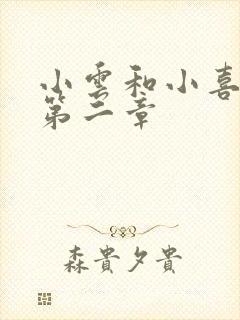 小雲和小喜
第二章
森貴夕貴